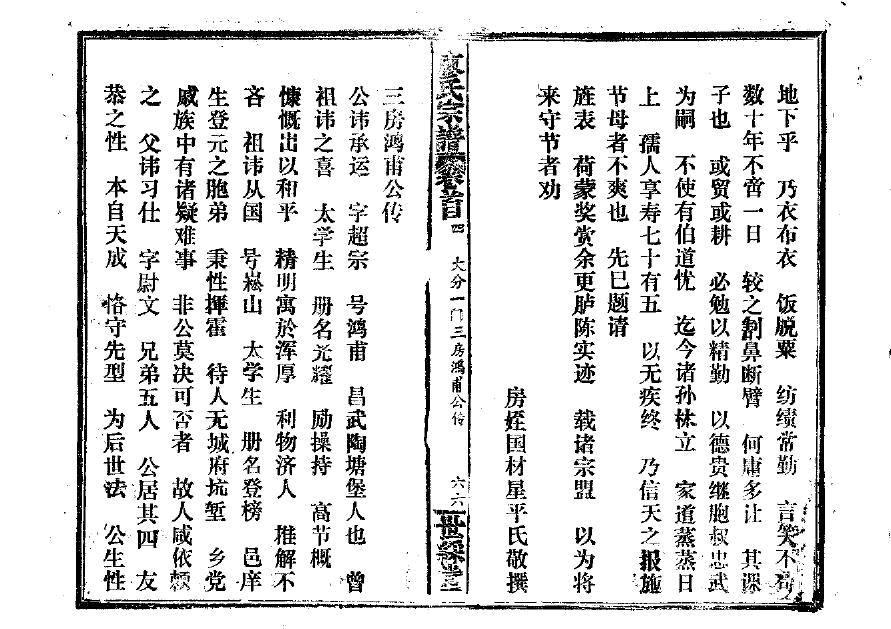 地下乎　乃衣布衣　饭脱粟　纺绩常勤　言笑不苟
数十年不啻一日　较之割鼻断臂　何庸多让　其课
子也　或贸或耕　必勉以精勤　以德贵继胞叔忠武
为嗣　不使有伯道忧　迄今诸孙林立　家道蒸蒸日
上　孺人享寿七十有五　以无疾终　乃信天之报施
节母者不爽也　先已题请
旌表　荷蒙奖赏余更胪陈实迹　载诸宗盟　以为将
来守节者劝
房姪国材星平氏敬撰
氏宗谱 卷首 四 大分一门三房鸿甫公传 六六 世綵堂
三房鸿甫公传
公讳承运　字超宗　号鸿甫　昌武陶塘堡人也　曾
祖讳之喜　太学生　册名光耀　励操持　高节概
慷慨出以和平　精明寓於浑厚　利物济人　推解不
吝　祖讳从国　号崧山　太学生　册名登榜　邑庠
生登元之胞弟　秉性挥霍　待人无城府坑堑　乡党
戚族中有诸疑难事　非公莫决可否者　故人咸依赖
之　父讳习仕　字尉文　兄弟五人　公居其四　友
恭之性　本自天成　恪守先型　为后世法　公生性